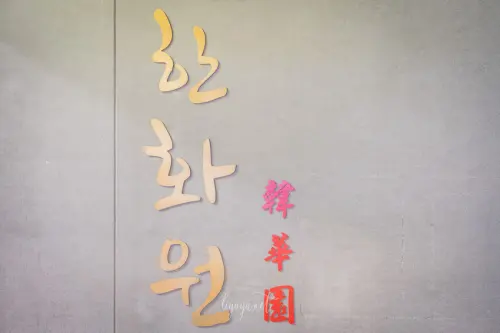 한화원
韓華園